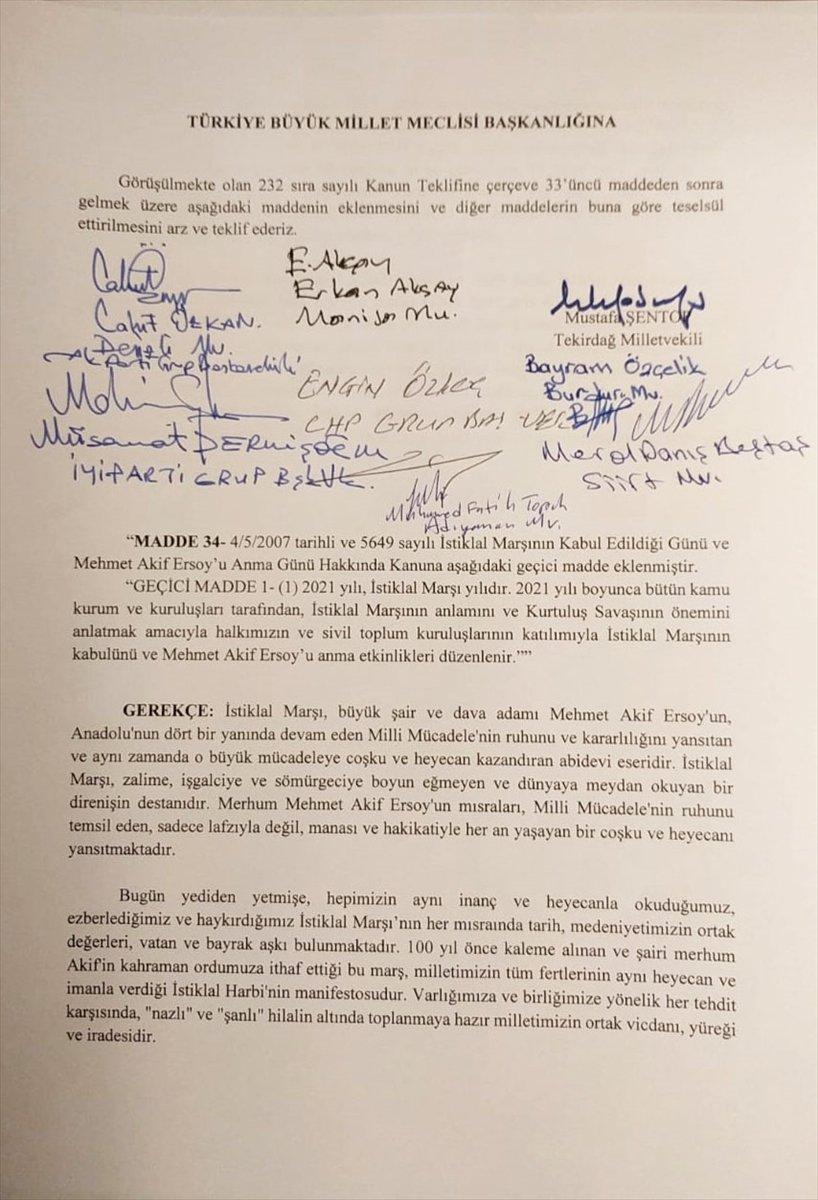 TÜRKİYE BÜYÜK MİLLET MECLİSİ BAŞKANLIĞINA
Görüşülmekte olan 232 sıra sayılı Kanun Teklifine çerçeve 33'üncü maddeden sonra
gelmek üzere aşağıdaki maddenin eklenmesini ve diğer maddelerin buna göre teselsül
ettirilmesini arz ve teklif ederiz.
Cahit
Cahit ÖZKAN.
Denizli Mv.
AK Parti Grup Başkanvekili
E. Akçay
Erkan Akçay
Manisa Mv.
Mustafa ŞENTOP
Tekirdağ Milletvekili
Bayram Özçelik
Burdur Mv.
ENGİN ÖZKOÇ
CHP GRUP BAŞ VEK
Müsavat DERVİŞOĞLU
İYİ PARTİ GRUP BŞK.VK.
Meral Danış Beştaş
Siirt Mv.
Muhammed Fatih Toprak
Adıyaman Mv.
“MADDE 34- 4/5/2007 tarihli ve 5649 sayılı İstiklal Marşının Kabul Edildiği Günü ve
Mehmet Akif Ersoy’u Anma Günü Hakkında Kanuna aşağıdaki geçici madde eklenmiştir.
“GEÇİCİ MADDE 1- (1) 2021 yılı, İstiklal Marşı yılıdır. 2021 yılı boyunca bütün kamu
kurum ve kuruluşları tarafından, İstiklal Marşının anlamını ve Kurtuluş Savaşının önemini
anlatmak amacıyla halkımızın ve sivil toplum kuruluşlarının katılımıyla İstiklal Marşının
kabulünü ve Mehmet Akif Ersoy’u anma etkinlikleri düzenlenir.””
GEREKÇE: İstiklal Marşı, büyük şair ve dava adamı Mehmet Akif Ersoy'un,
Anadolu'nun dört bir yanında devam eden Milli Mücadele'nin ruhunu ve kararlılığını yansıtan
ve aynı zamanda o büyük mücadeleye coşku ve heyecan kazandıran abidevi eseridir. İstiklal
Marşı, zalime, işgalciye ve sömürgeciye boyun eğmeyen ve dünyaya meydan okuyan bir
direnişin destanıdır. Merhum Mehmet Akif Ersoy'un mısraları, Milli Mücadele'nin ruhunu
temsil eden, sadece lafzıyla değil, manası ve hakikatiyle her an yaşayan bir coşku ve heyecanı
yansıtmaktadır.
Bugün yediden yetmişe, hepimizin aynı inanç ve heyecanla okuduğumuz,
ezberlediğimiz ve haykırdığımız İstiklal Marşı’nın her mısraında tarih, medeniyetimizin ortak
değerleri, vatan ve bayrak aşkı bulunmaktadır. 100 yıl önce kaleme alınan ve şairi merhum
Akif'in kahraman ordumuza ithaf ettiği bu marş, milletimizin tüm fertlerinin aynı heyecan ve
imanla verdiği İstiklal Harbi'nin manifestosudur. Varlığımıza ve birliğimize yönelik her tehdit
karşısında, "nazlı" ve "şanlı" hilalin altında toplanmaya hazır milletimizin ortak vicdanı, yüreği
ve iradesidir.